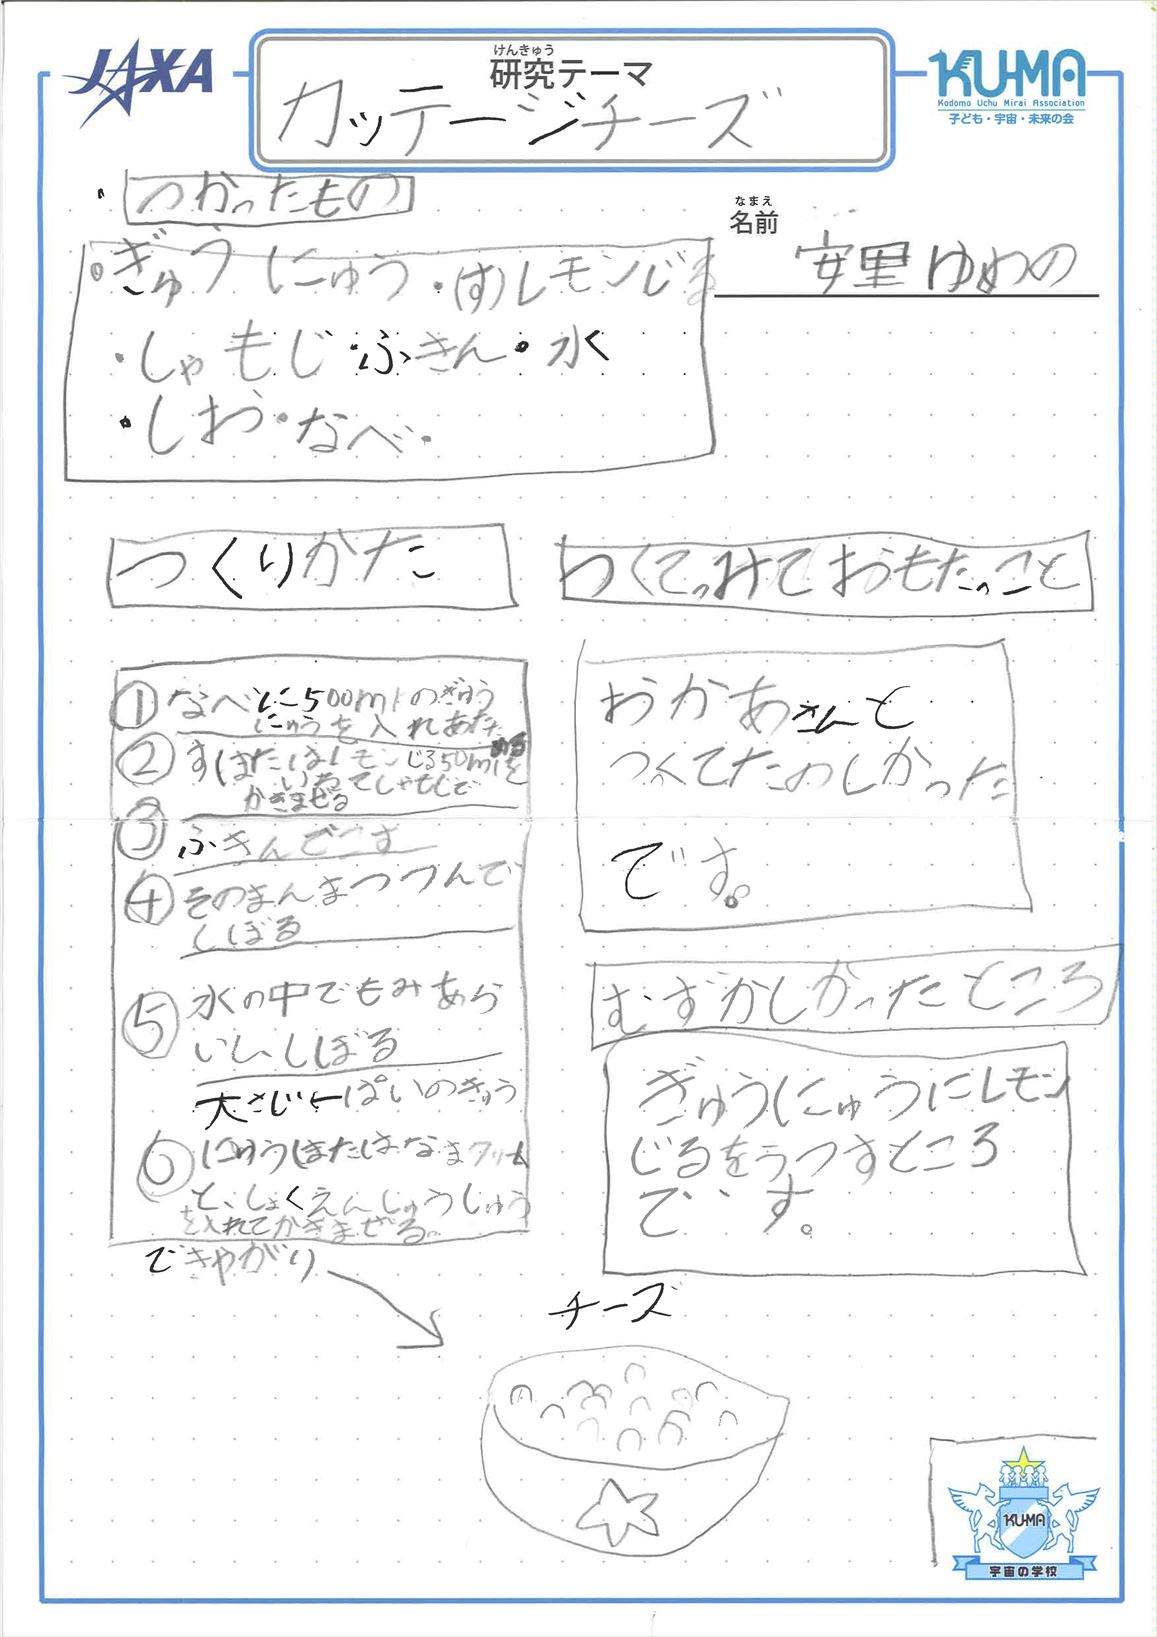 JAXA
けんきゅう
研究テーマ
カッテージチーズ
KU-MA
Kodomo Uchu Mirai Association
子ども・宇宙・未来の会
・つかったもの
なまえ
名前
安里ゆめの
・ぎゅうにゅう・(す)レモンじる
・しゃもじ・ふきん・水
・しお・なべ・
つくりかた
つくてっみておもたっこと
①なべに500mlのぎゅう
にゅうを入れあたためる
②すはたはレモンじる50mlを
いれてしゃもじで
かきまぜる
③ふきんでこす
④そのまんまつつんで
しぼる
⑤水の中でもみあら
いし、しぼる
大さじ一ぱいのぎゅう
⑥にゅうまたはなまクリーム
と、しょくえんしょうしょう
を入れてかきまぜる。
できやがり
おかあさんと
つくてたのしかった
です。
むずかしかったところ
ぎゅうにゅうにレモン
じるをうつすところ
です。
チーズ
KU-MA
宇宙の学校